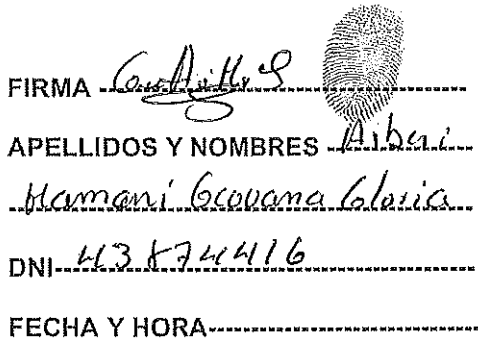 FIRMA
APELLIDOS Y NOMBRES
Mamani Geovana Gloria
DNI 43874416
FECHA Y HORA